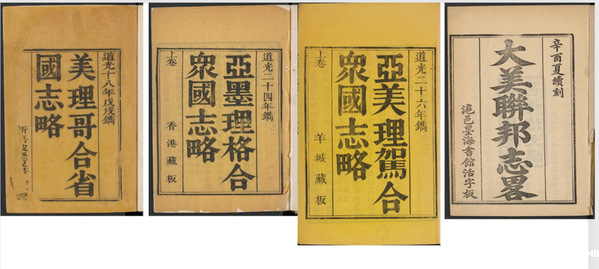 道光十八年戊戌鐫
美理哥合省
國志略
道光二十四年鐫
亞墨理格合
衆國志略
上卷
香港藏板
道光二十六年鐫
亞美理駕合
衆國志略
上卷
羊城藏板
辛酉夏續刻
大美聯邦志畧
滬邑墨海書館活字板